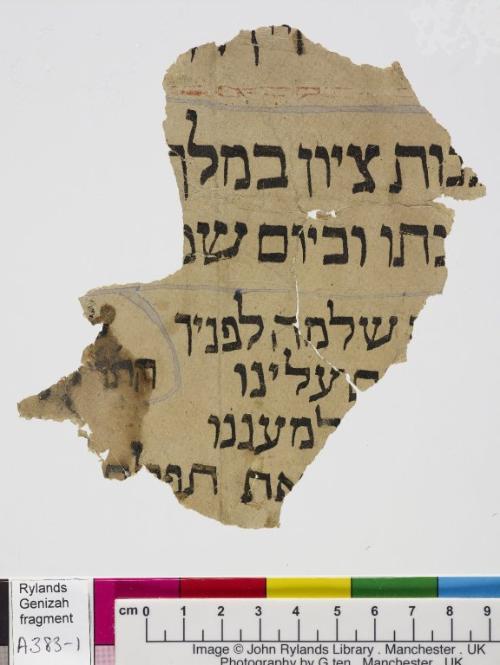 נות ציון במלך
תו וביום שמ
שלמה לפניך
עלינו
למעננו
את
Rylands
Genizah
fragment
A383-1
cm 0 1 2 3 4 5 6 7 8 9
Image © John Rylands Library . Manchester . UK
Photography by G.ten . Manchester . UK